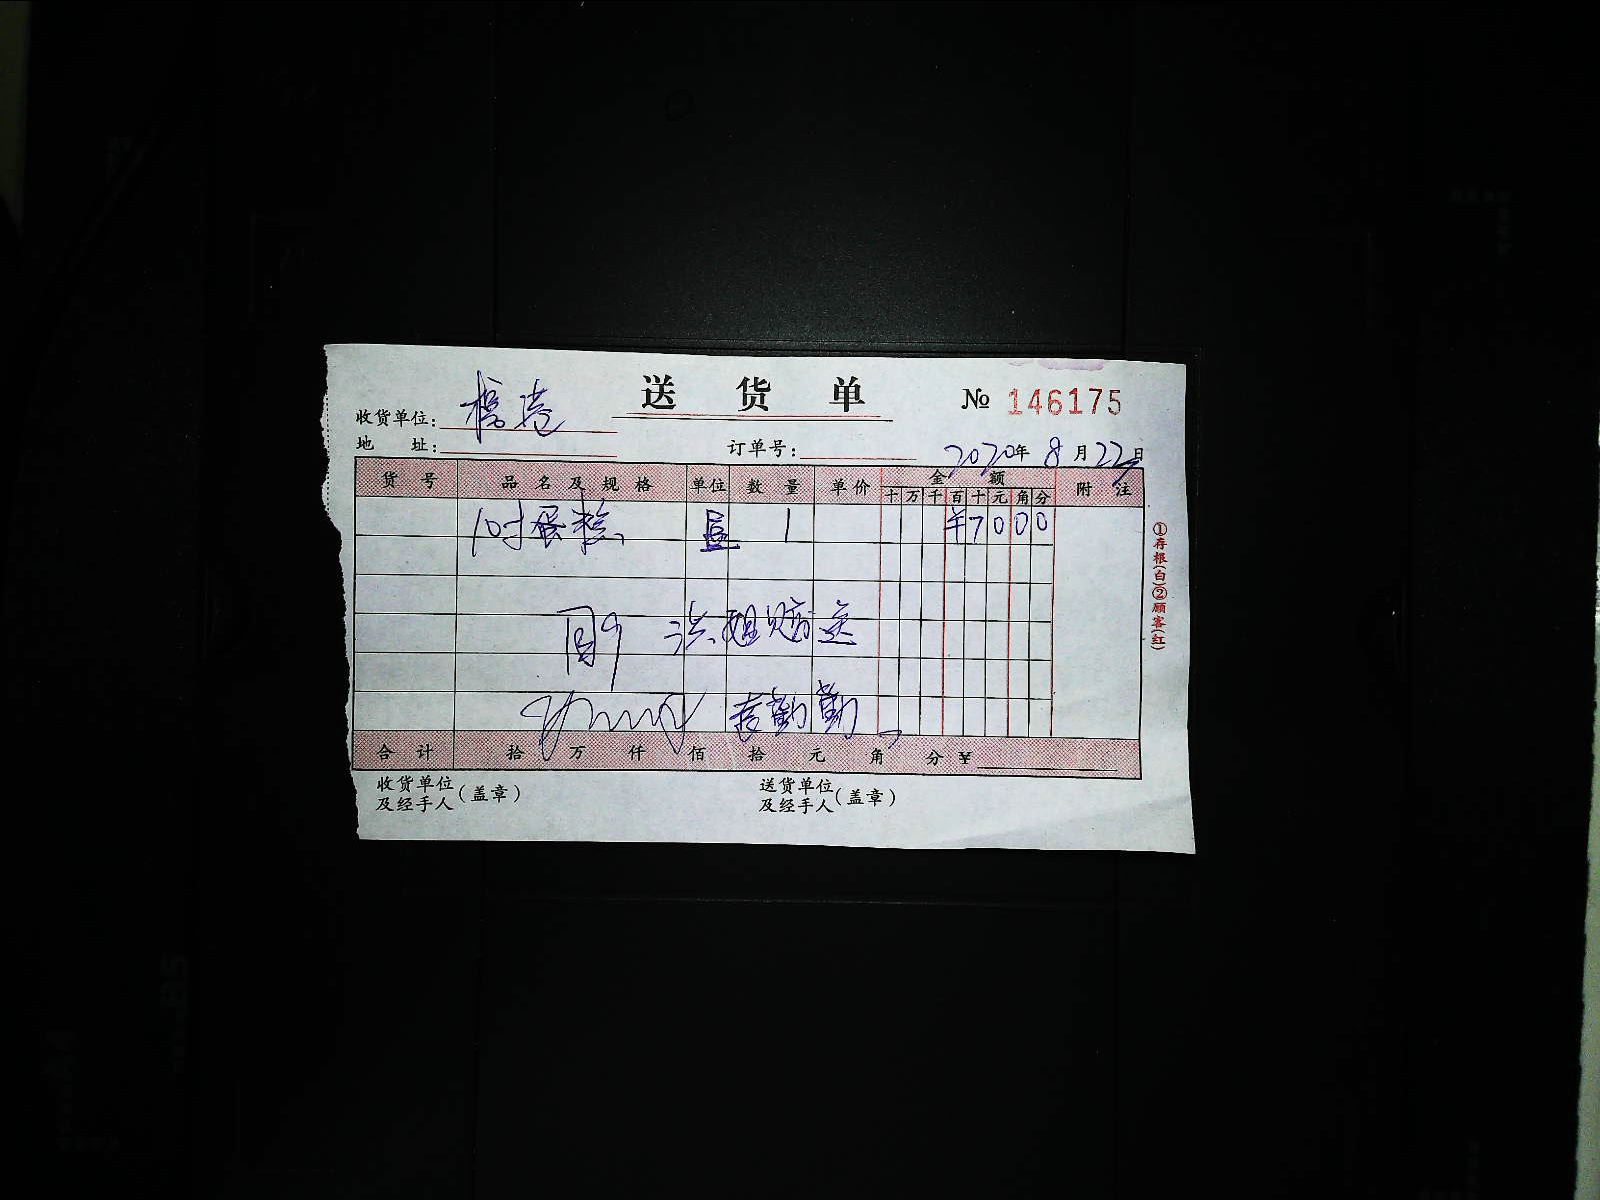 送货单 № 146175
收货单位:
地 址: 订单号: 2020年 8月22日
货号 品名及规格 单位 数量 单价 金额 附注
十 万 千 百 十 元 角 分
10寸蛋糕 1 ¥7000
洪姐赠送
勤勤
合计 拾 万 仟 佰 拾 元 角 分 ¥
收货单位及经手人(盖章) 送货单位及经手人(盖章)
①存根(白)②顾客(红)